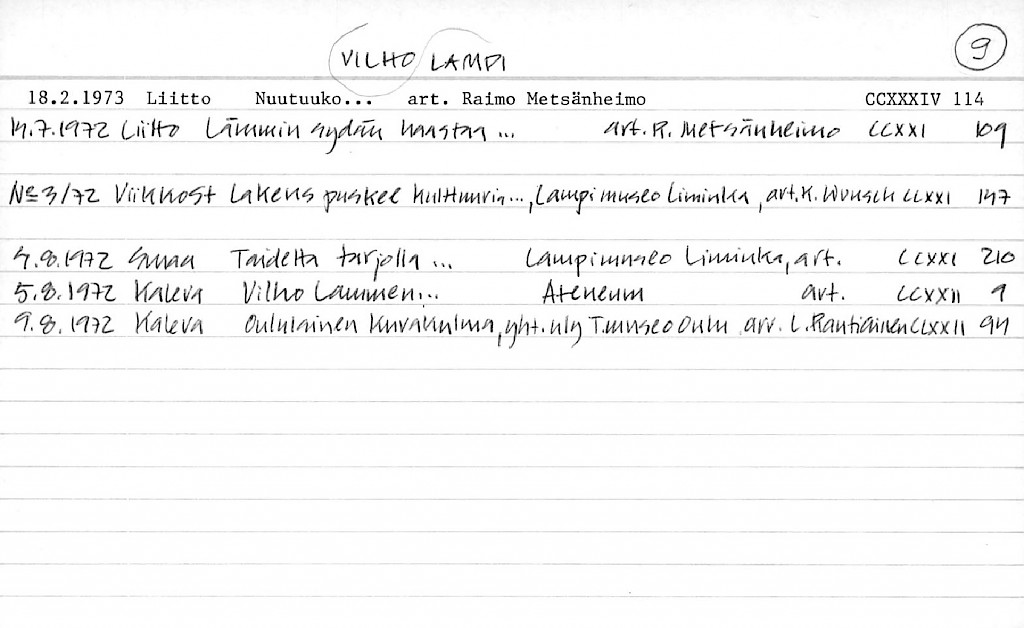 VILHO LAMPI
9
18.2.1973 Liitto Nuutuuko... art. Raimo Metsänheimo CCXXXIV 114
14.7.1972 Liitto Lämmin sydän haastaa ... art. R. Metsänheimo CCXXI 109
№ 3/72 Viikkost Lakeus puskee kulttuuria..., Lampimuseo Liminka, art. K. Wunsch CCXXI 147
4.8.1972 Taidetta tarjolla ... Lampimuseo Liminka, art. CCXXI 210
5.8.1972 Kaleva Vilho Lammen... Ateneum art. CCXXII 9
9.8.1972 Kaleva Oululainen Kuvakulma, yht.nly T.museo Oulu arv. L. Rautiainen CCXXII 94